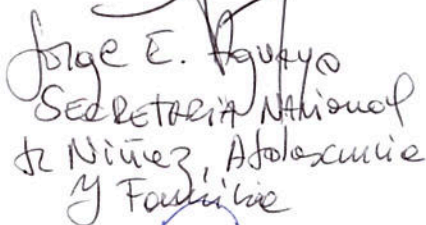 Jorge E. Aguayo
SECRETARIA NAcional
de Niñez, Adolescencia
y Familia